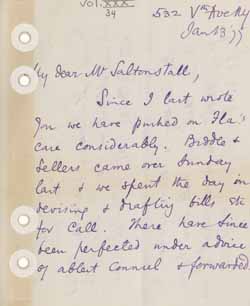 Vol. XXX
34
532 Vth Ave NY
Jan 13 '77
My dear Mr Saltonstall,
Since I last wrote
you we have pushed on Fla's
case considerably. Biddle &
Sellers came over Sunday
last & we spent the day in
devising & drafting bills &c
for Call. These have since
been perfected under advice
of ablest Counsel & forwarded